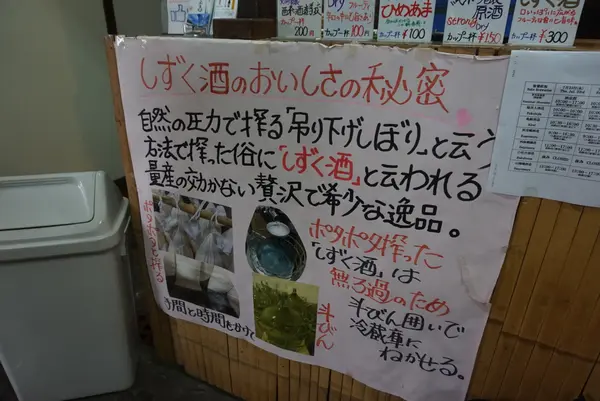 カップ一杯 200円
カップ一杯 ¥100
ひめあま
カップ一杯 ¥100
原酒
strong Dry
カップ一杯 ¥150
カップ一杯 ¥300
しずく酒のおいしさの秘密
自然の圧力で搾る「吊り下げしぼり」と云う
方法で搾った俗に「しずく酒」と云われる
量産の効かない贅沢で希少な逸品。
ポタポタ搾る
手間と時間をかけて
斗びん
ポタポタ搾った
「しずく酒」は
無ろ過のため
斗びん囲いで
冷蔵庫に
ねかせる。